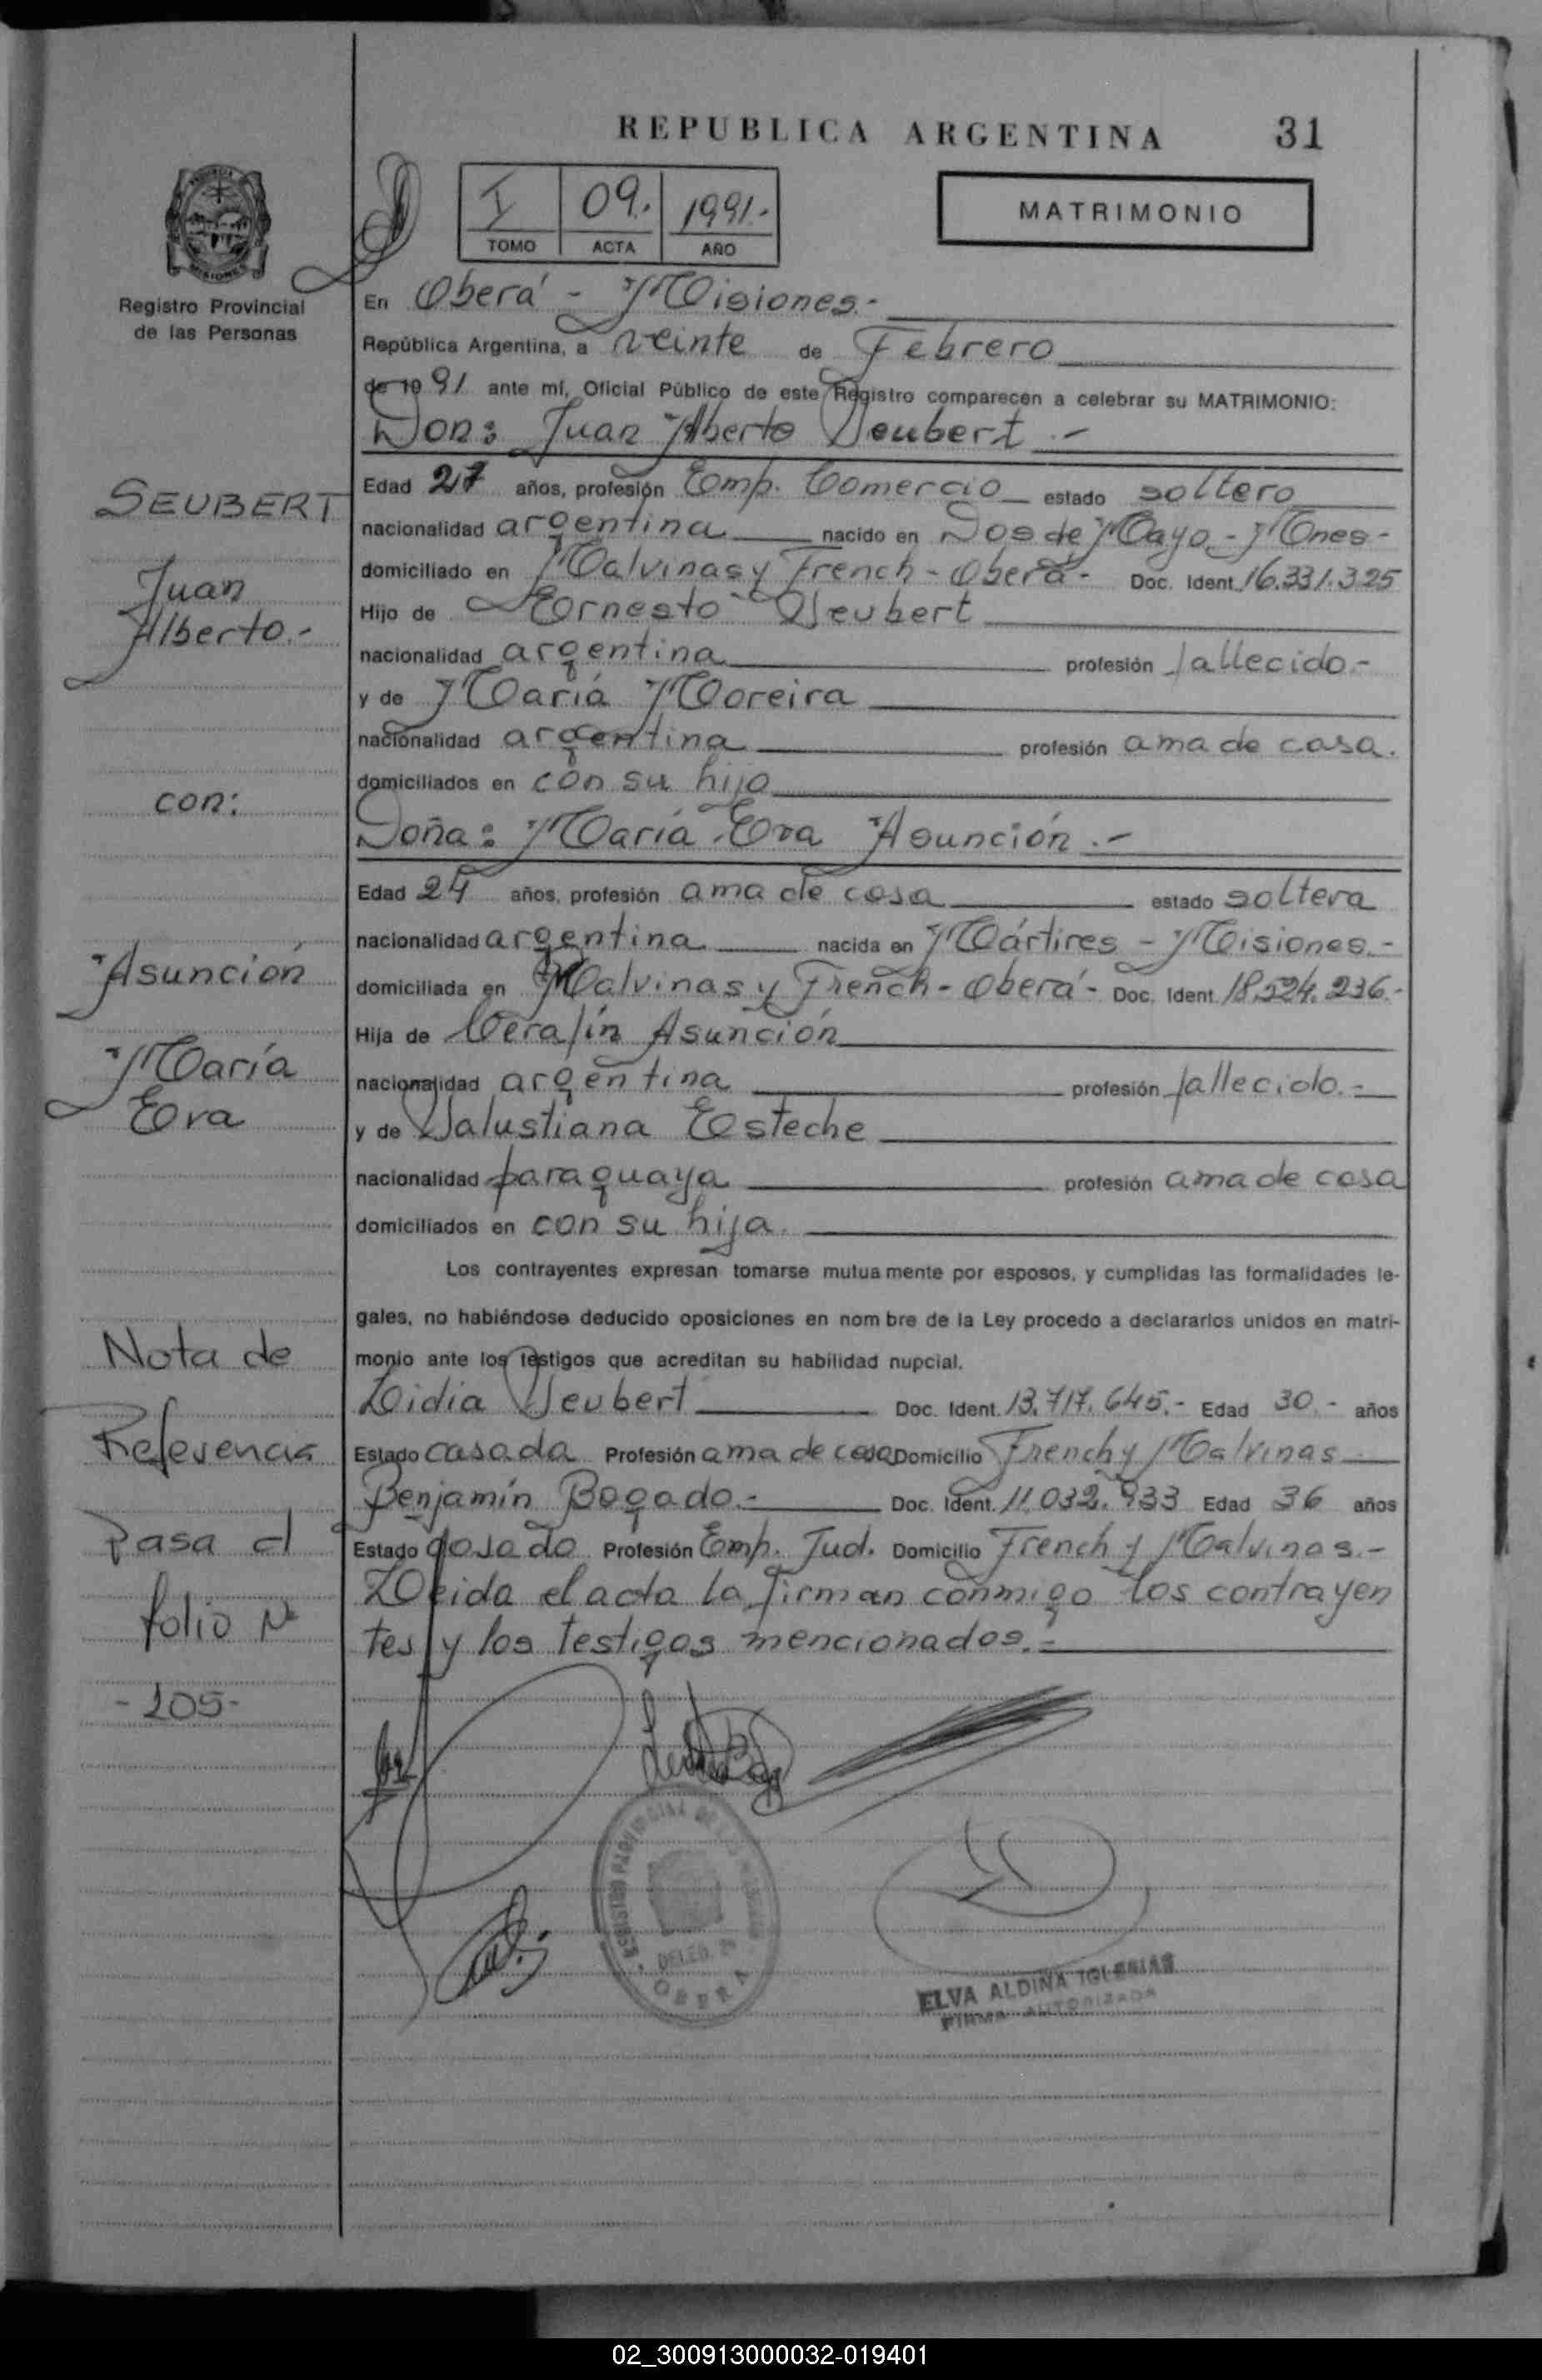 REPUBLICA ARGENTINA 31
I 09. 1991.-
TOMO ACTA AÑO
MATRIMONIO
Registro Provincial
de las Personas
En Oberá - Misiones.-
República Argentina, a veinte de Febrero
de 19 91 ante mí, Oficial Público de este Registro comparecen a celebrar su MATRIMONIO:
Don: Juan Alberto Seubert.-
Edad 27 años, profesión Emp. Comercio estado soltero
nacionalidad argentina nacido en Dos de Mayo.- Mnes-
domiciliado en Malvinas y French - Oberá - Doc. Ident. 16.331.325
Hijo de Ernesto Seubert
nacionalidad argentina profesión fallecido.-
y de María Moreira
nacionalidad argentina profesión ama de casa.
domiciliados en con su hijo
Doña: María Eva Asunción.-
Edad 24 años, profesión ama de casa estado soltera
nacionalidad argentina nacida en Mártires - Misiones.-
domiciliada en Malvinas y French - Oberá - Doc. Ident. 18.524.236.-
Hija de Serafín Asunción
nacionalidad argentina profesión fallecido.-
y de Salustiana Esteche
nacionalidad paraguaya profesión ama de casa
domiciliados en con su hija.
Los contrayentes expresan tomarse mutua mente por esposos, y cumplidas las formalidades le-
gales, no habiéndose deducido oposiciones en nom bre de la Ley procedo a declararlos unidos en matri-
monio ante los testigos que acreditan su habilidad nupcial.
Lidia Seubert Doc. Ident. 13.717.645.- Edad 30.- años
Estado casada Profesión ama de casa Domicilio French y Malvinas
Benjamín Bogado.- Doc. Ident. 11.032.933 Edad 36 años
Estado casado Profesión Emp. Jud. Domicilio French y Malvinas.-
Leída el acta la firman conmigo los contrayen
tes y los testigos mencionados.-
SEUBERT
Juan
Alberto.-
con:
Asunción
María
Eva
Nota de
Referencia
Pasa al
folio Nº
-105-
REGISTRO PROVINCIAL DE LAS PERSONAS
DELEG.
OBERA
ELVA ALDINA IGLESIAS
FIRMA AUTORIZADA
02_300913000032-019401